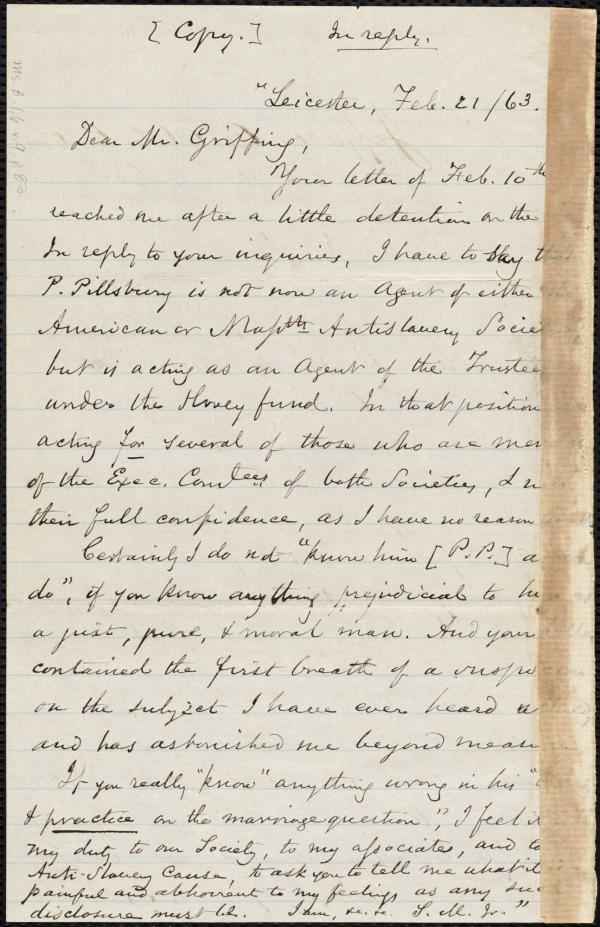 [Copy.] In reply.
"Leicester, Feb. 21/63.
Dear Mr. Griffing,
Your letter of Feb. 10th
reached me after a little detention on the
In reply to your inquiries, I have to say th
P. Pillsbury is not now an Agent of either
American or Masstts Antislavery Socie
but is acting as an Agent of the Trustee
under the Hovey fund. In that position
acting for several of those who are mem
of the Exec. Comtees of both Societies, &
their full confidence, as I have no reason
Certainly I do not "know him [P.P.] a
do", if you know anything prejudicial to h
a just, pure, & moral man. And your
contained the first breath of a suspi
on the subject I have ever heard
and has astonished me beyond measu
If you really "know" anything wrong in his
& practice on the marriage question", I feel it
my duty to our Society, to my associates, and to
Anti-Slavery Cause, to ask you to tell me what it
painful and abhorrent to my feelings as any suc
disclosure must be. I am, &c. &c. S. M. Jr."